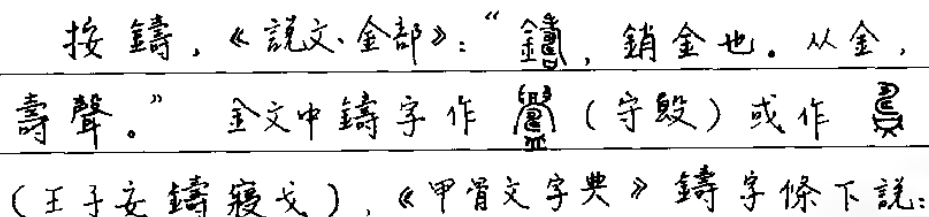 按鑄,《説文·金部》:“鑄,銷金也。从金,
壽聲。” 金文中鑄字作(守𣪘)或作
(王子安鑄寢戈),《甲骨文字典》鑄字條下説: